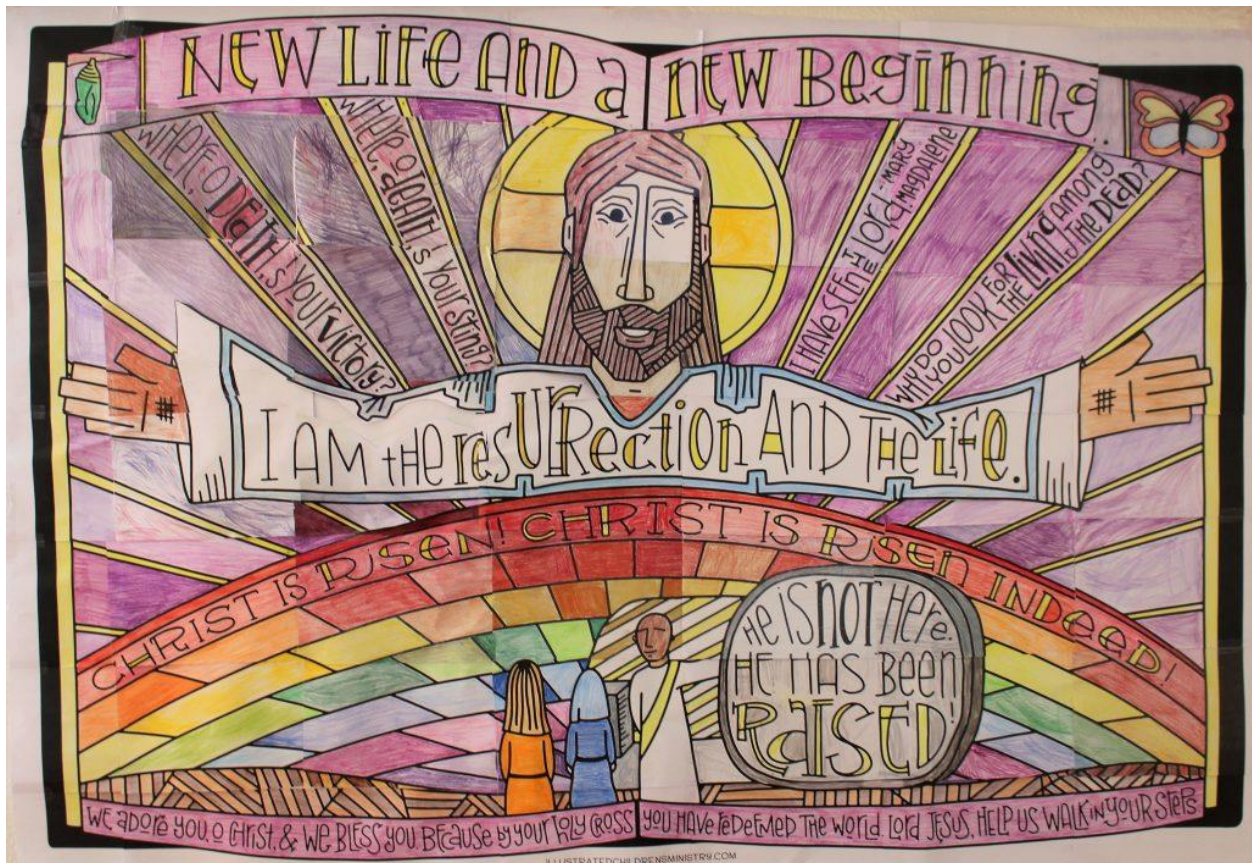 NEW LIFE AND a NEW BEGINNING...
WHERE, O DEATH, IS YOUR VICTORY?
WHERE, O DEATH, IS YOUR STING?
I HAVE SEEN THE LORD - MARY
MAGDALENE
WHY DO YOU LOOK FOR THE LIVING AMONG
THE DEAD?
I AM the resURRection AND THE Life.
CHRIST IS RISEN! CHRIST IS RISEN INDEED!
He is NOT Here.
HE HAS BEEN
RAISED!
WE ADORE YOU, O CHRIST, & WE BLESS YOU, BECAUSE BY YOUR HOLY CROSS
YOU HAVE REDEEMED THE WORLD. LORD JESUS, HELP US WALK IN YOUR STEPS
ILLUSTRATEDCHILDRENSMINISTRY.COM